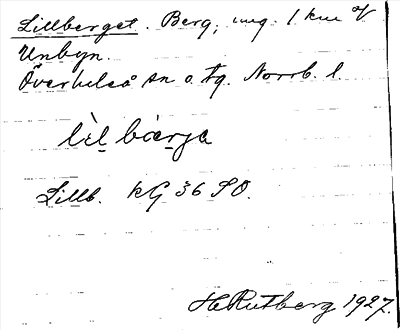 Lillberget. Berg, ung. 1 km V
Unbyn.
Överluleå sn o. tg. Norrb. l.
lìl bàrja
Lillb. kG 36 SO.
H Rutberg 1927.